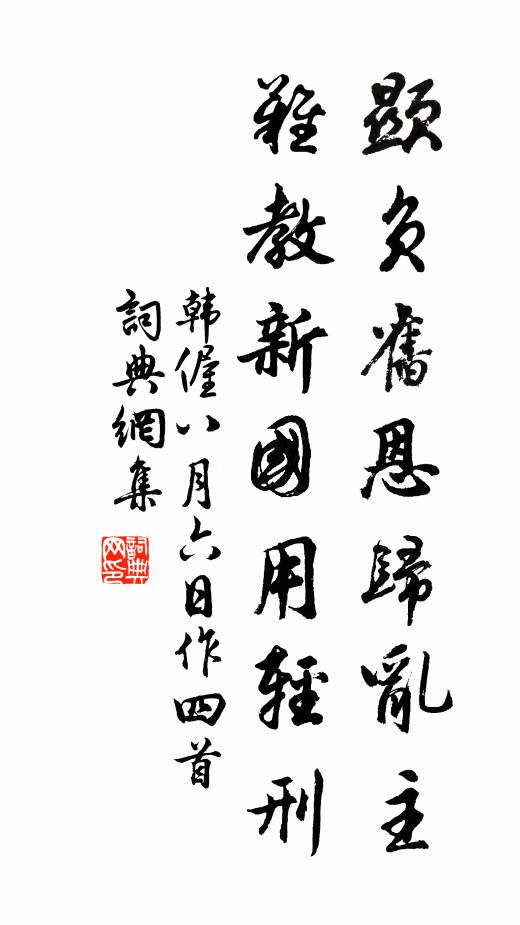 顯負舊恩歸亂主
難教新國用輕刑
韩偓八月六日作四首
詞典網集
詞典网印